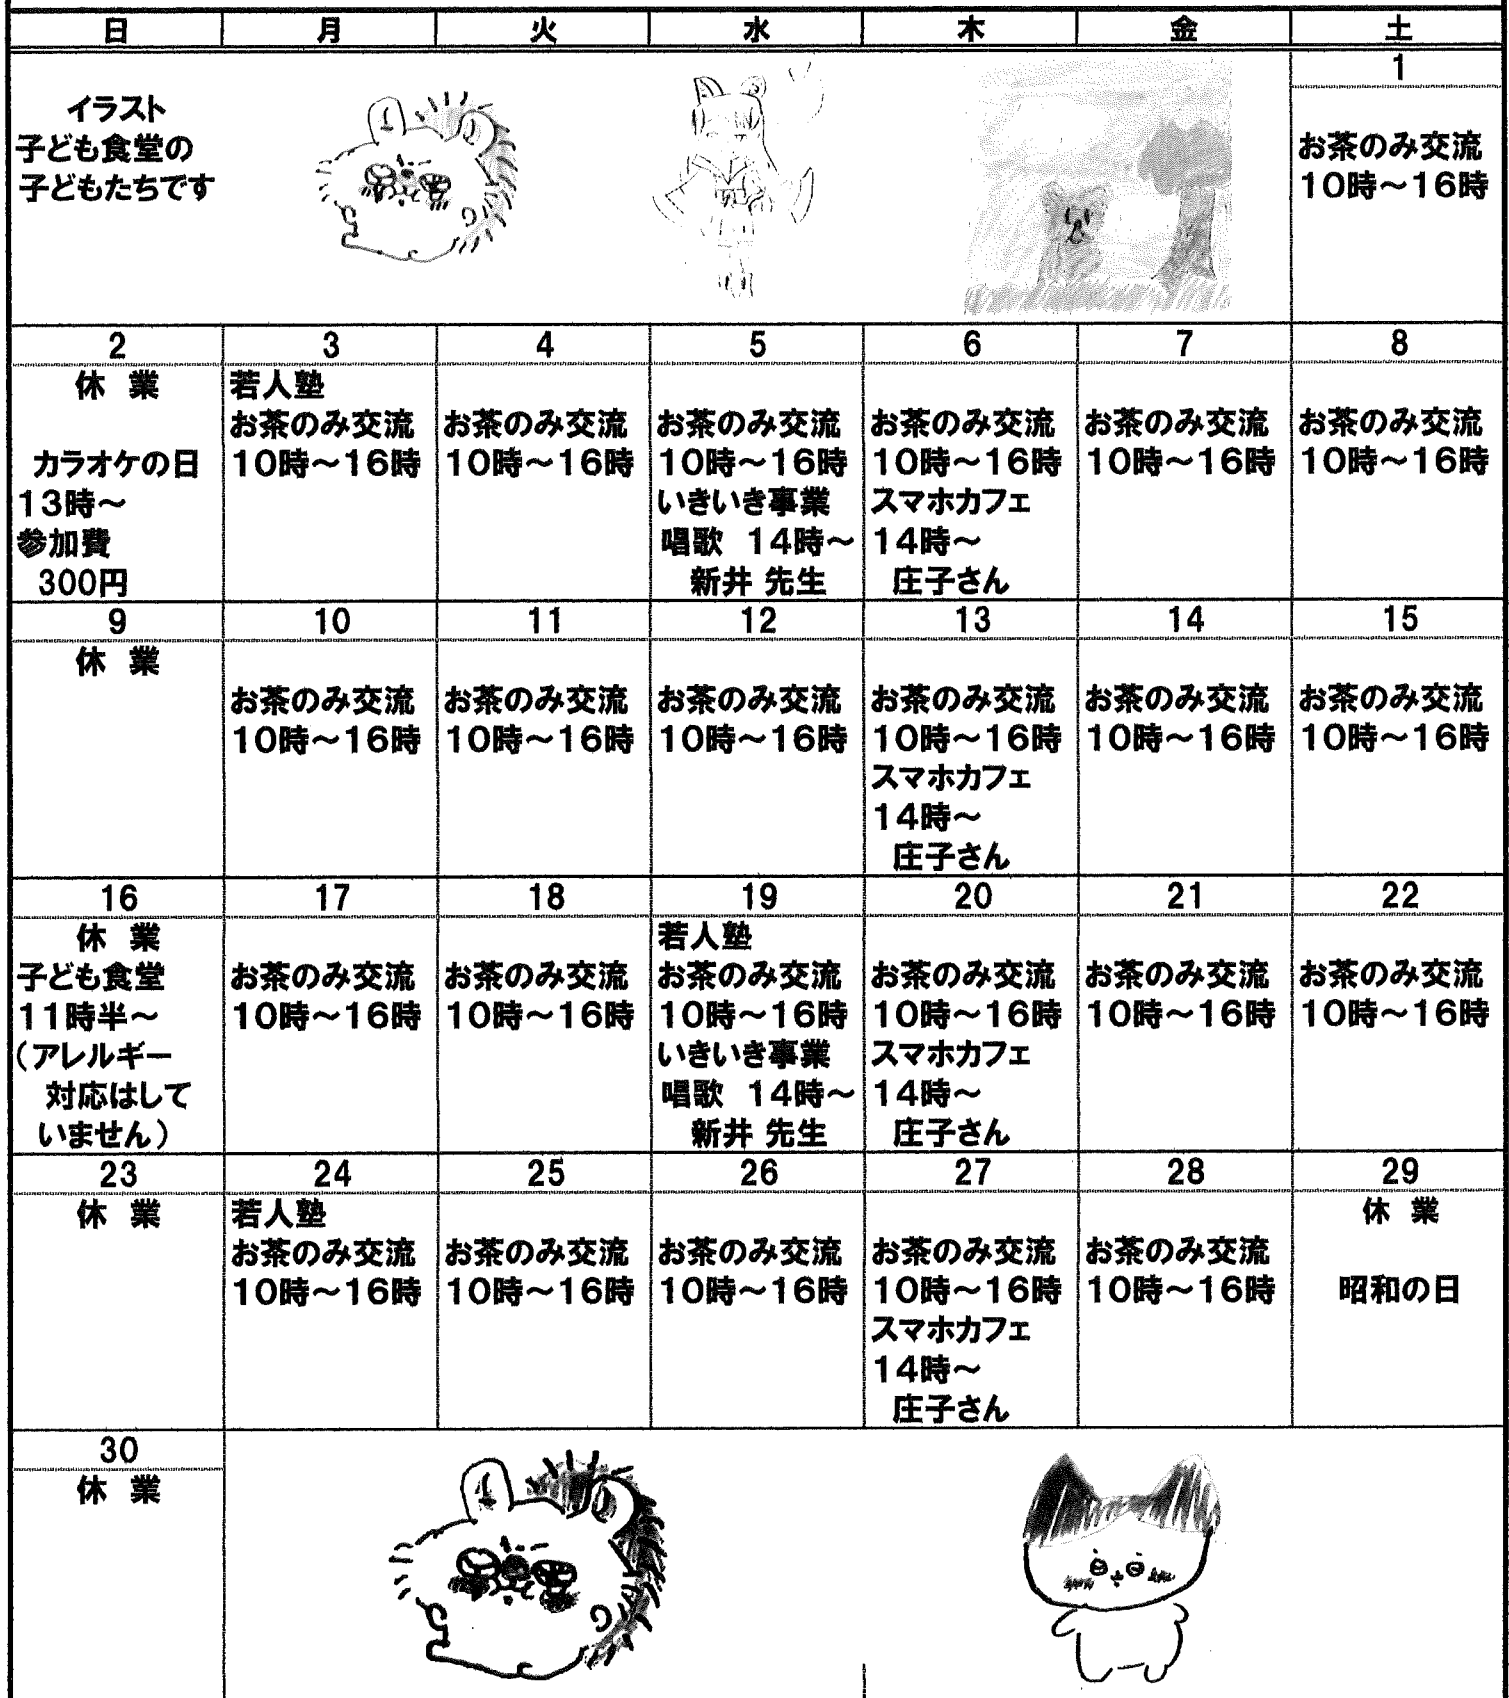 日 月 火 水 木 金 土
イラスト
子ども食堂の
子どもたちです
1
お茶のみ交流
10時～16時
2 3 4 5 6 7 8
休 業
カラオケの日
13時～
参加費
300円
若人塾
お茶のみ交流
10時～16時
お茶のみ交流
10時～16時
お茶のみ交流
10時～16時
いきいき事業
唱歌 14時～
新井 先生
お茶のみ交流
10時～16時
スマホカフェ
14時～
庄子さん
お茶のみ交流
10時～16時
お茶のみ交流
10時～16時
9 10 11 12 13 14 15
休 業
お茶のみ交流
10時～16時
お茶のみ交流
10時～16時
お茶のみ交流
10時～16時
お茶のみ交流
10時～16時
スマホカフェ
14時～
庄子さん
お茶のみ交流
10時～16時
お茶のみ交流
10時～16時
16 17 18 19 20 21 22
休 業
子ども食堂
11時半～
（アレルギー
対応はして
いません）
お茶のみ交流
10時～16時
お茶のみ交流
10時～16時
若人塾
お茶のみ交流
10時～16時
いきいき事業
唱歌 14時～
新井 先生
お茶のみ交流
10時～16時
スマホカフェ
14時～
庄子さん
お茶のみ交流
10時～16時
お茶のみ交流
10時～16時
23 24 25 26 27 28 29
休 業
若人塾
お茶のみ交流
10時～16時
お茶のみ交流
10時～16時
お茶のみ交流
10時～16時
お茶のみ交流
10時～16時
スマホカフェ
14時～
庄子さん
お茶のみ交流
10時～16時
休 業
昭和の日
30
休 業